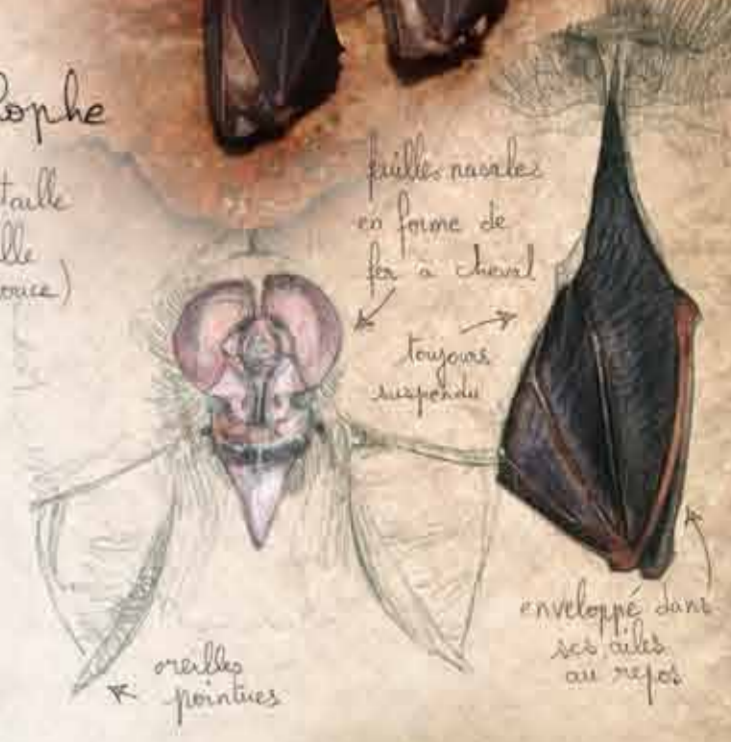 lophe
taille
lle
ouce)
feuilles nasales
en forme de
fer à cheval
toujours
suspendu
enveloppé dans
ses ailes
au repos
oreilles
pointues